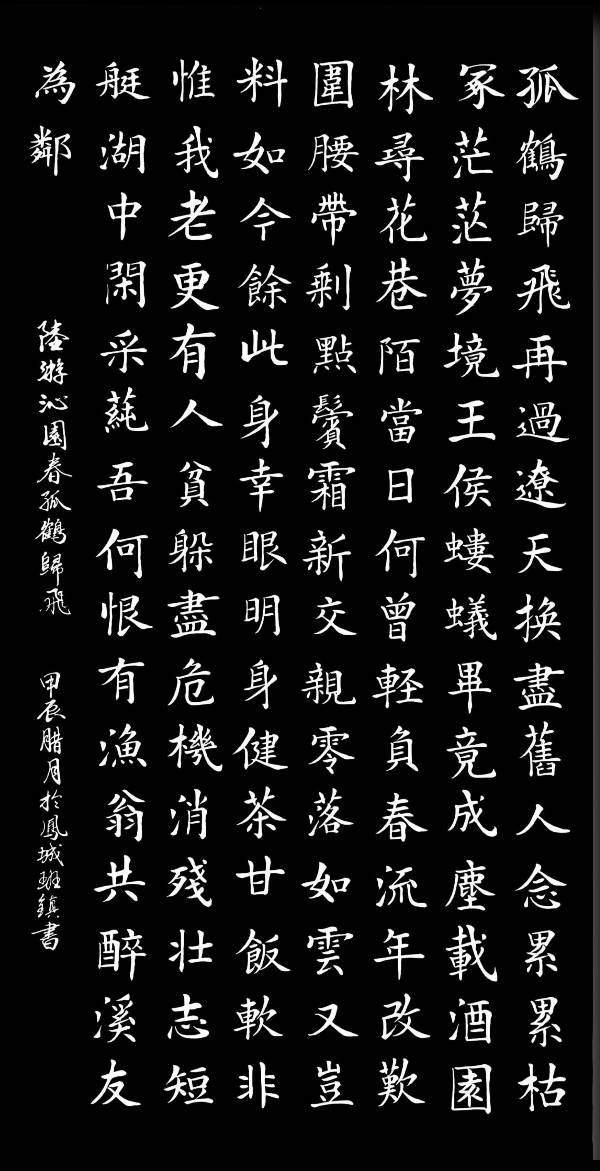 孤鶴歸飛再過遼天換盡舊人念累累枯
冢茫茫夢境王侯螻蟻畢竟成塵載酒園
林尋花巷陌當日何曾軽負春流年改歎
圍腰帶剩點鬢霜新交親零落如雲又豈
料如今餘此身幸眼明身健茶甘飯軟非
惟我老更有人貧躲盡危機消殘壯志短
艇湖中閑采蒓吾何恨有漁翁共醉溪友
為鄰
陸游沁園春孤鶴歸飛 甲辰腊月於鳳城班鎮書